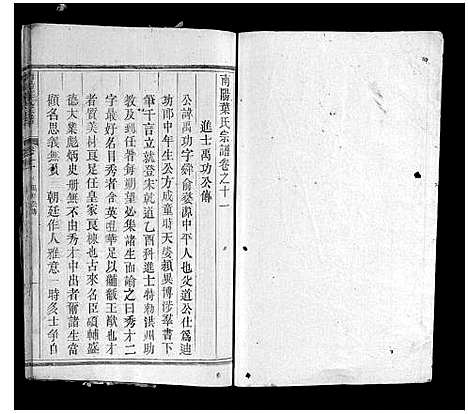 南陽葉氏宗譜卷之十一
進士禹功公傳
公諱禹功字舜俞婺源中平人也父道公仕爲迪
功郎中年生公方成童時天姿穎異博涉羣書下
筆千言立就登宋乾道乙酉科進士特勅洪州助
教及任訓導每朔望必集諸生而諭之曰秀才二
字最好名目秀者含英咀華足以黼黻王猷也才
者質美材良足任皇家良棟也古來名臣碩輔盛
德大業彪炳史册無不由秀才中出者爾諸生當
顧名思義無負 朝廷作人雅意一時多士爭自